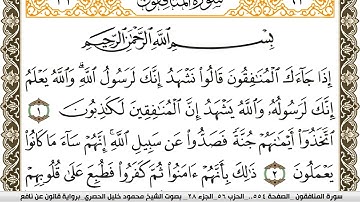 سورة المنافقون
بِسْمِ اللَّهِ الرَّحْمَٰنِ الرَّحِيمِ
إِذَا جَآءَكَ ٱلْمُنَٰفِقُونَ قَالُوا۟ نَشْهَدُ إِنَّكَ لَرَسُولُ ٱللَّهِۖ وَٱللَّهُ يَعْلَمُ
إِنَّكَ لَرَسُولُهُۥ وَٱللَّهُ يَشْهَدُ إِنَّ ٱلْمُنَٰفِقِينَ لَكَٰذِبُونَ ١
ٱتَّخَذُوٓا۟ أَيْمَٰنَهُمْ جُنَّةً فَصَدُّوا۟ عَن سَبِيلِ ٱللَّهِۖ إِنَّهُمْ سَآءَ مَا كَانُوا۟
يَعْمَلُونَ ٢ ذَٰلِكَ بِأَنَّهُمْ ءَامَنُوا۟ ثُمَّ كَفَرُوا۟ فَطُبِعَ عَلَىٰ قُلُوبِهِمْ
سورة المنافقون _الصفحة ٥٥٤_ الحزب ٥٦_ الجزء ٢٨_ بصوت الشيخ محمود خليل الحصري_ برواية قالون عن نافع